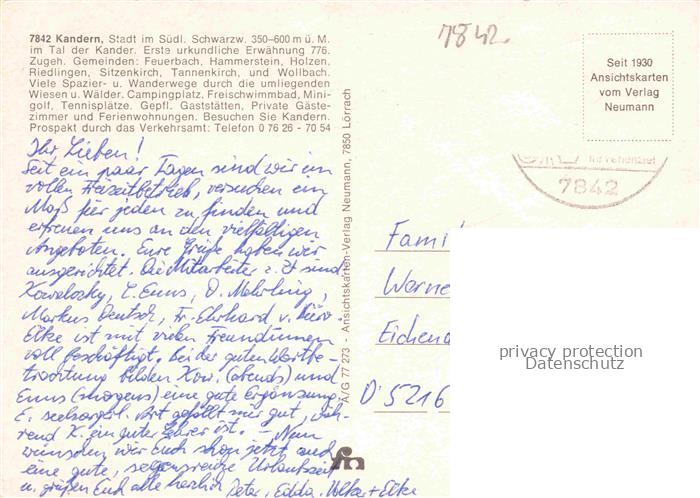 7842 Kandern, Stadt im Südl. Schwarzw. 350–600 m ü. M.
im Tal der Kander. Erste urkundliche Erwähnung 776.
Zugeh. Gemeinden: Feuerbach, Hammerstein, Holzen,
Riedlingen, Sitzenkirch, Tannenkirch, und Wollbach.
Viele Spazier- u. Wanderwege durch die umliegenden
Wiesen u. Wälder. Campingplatz, Freischwimmbad, Mini-
golf, Tennisplätze. Gepfl. Gaststätten, Private Gäste-
zimmer und Ferienwohnungen. Besuchen Sie Kandern.
Prospekt durch das Verkehrsamt: Telefon 0 76 26 - 70 54
Ihr Lieben!
Seit ein paar Tagen sind wir im
vollen Freizeitbetrieb, versuchen ein
Maß für jeden zu finden und
erfreuen uns an den vielfältigen
Angeboten. Eure Grüße haben wir
ausgerichtet. Die Mitarbeiter z. Zt sind:
Kowalosky, E. Enns, D. Mehrling,
Markus Deutsch, Fr. Ehrhard v. Büro.
Elke ist mit vielen Freundinnen
voll beschäftigt. Bei der guten Wortbe-
trachtung bilden Kow. (abends) und
Enns (morgens) eine gute Ergänzung.
E. seelsorgl. Art gefällt mir gut, wäh-
rend K. ein guter Lehrer ist. - Nun
wünschen wir Euch schon jetzt auch
eine gute, segensreiche Urlaubszeit
u. grüßen Euch alle herzlich Peter, Edda, Volker + Elke
A/G 77 273 - Ansichtskarten-Verlag Neumann, 7850 Lörrach
7842
Seit 1930
Ansichtskarten
vom Verlag
Neumann
7842
Famil
Werne
Eichend
D 5216
privacy protection
Datenschutz